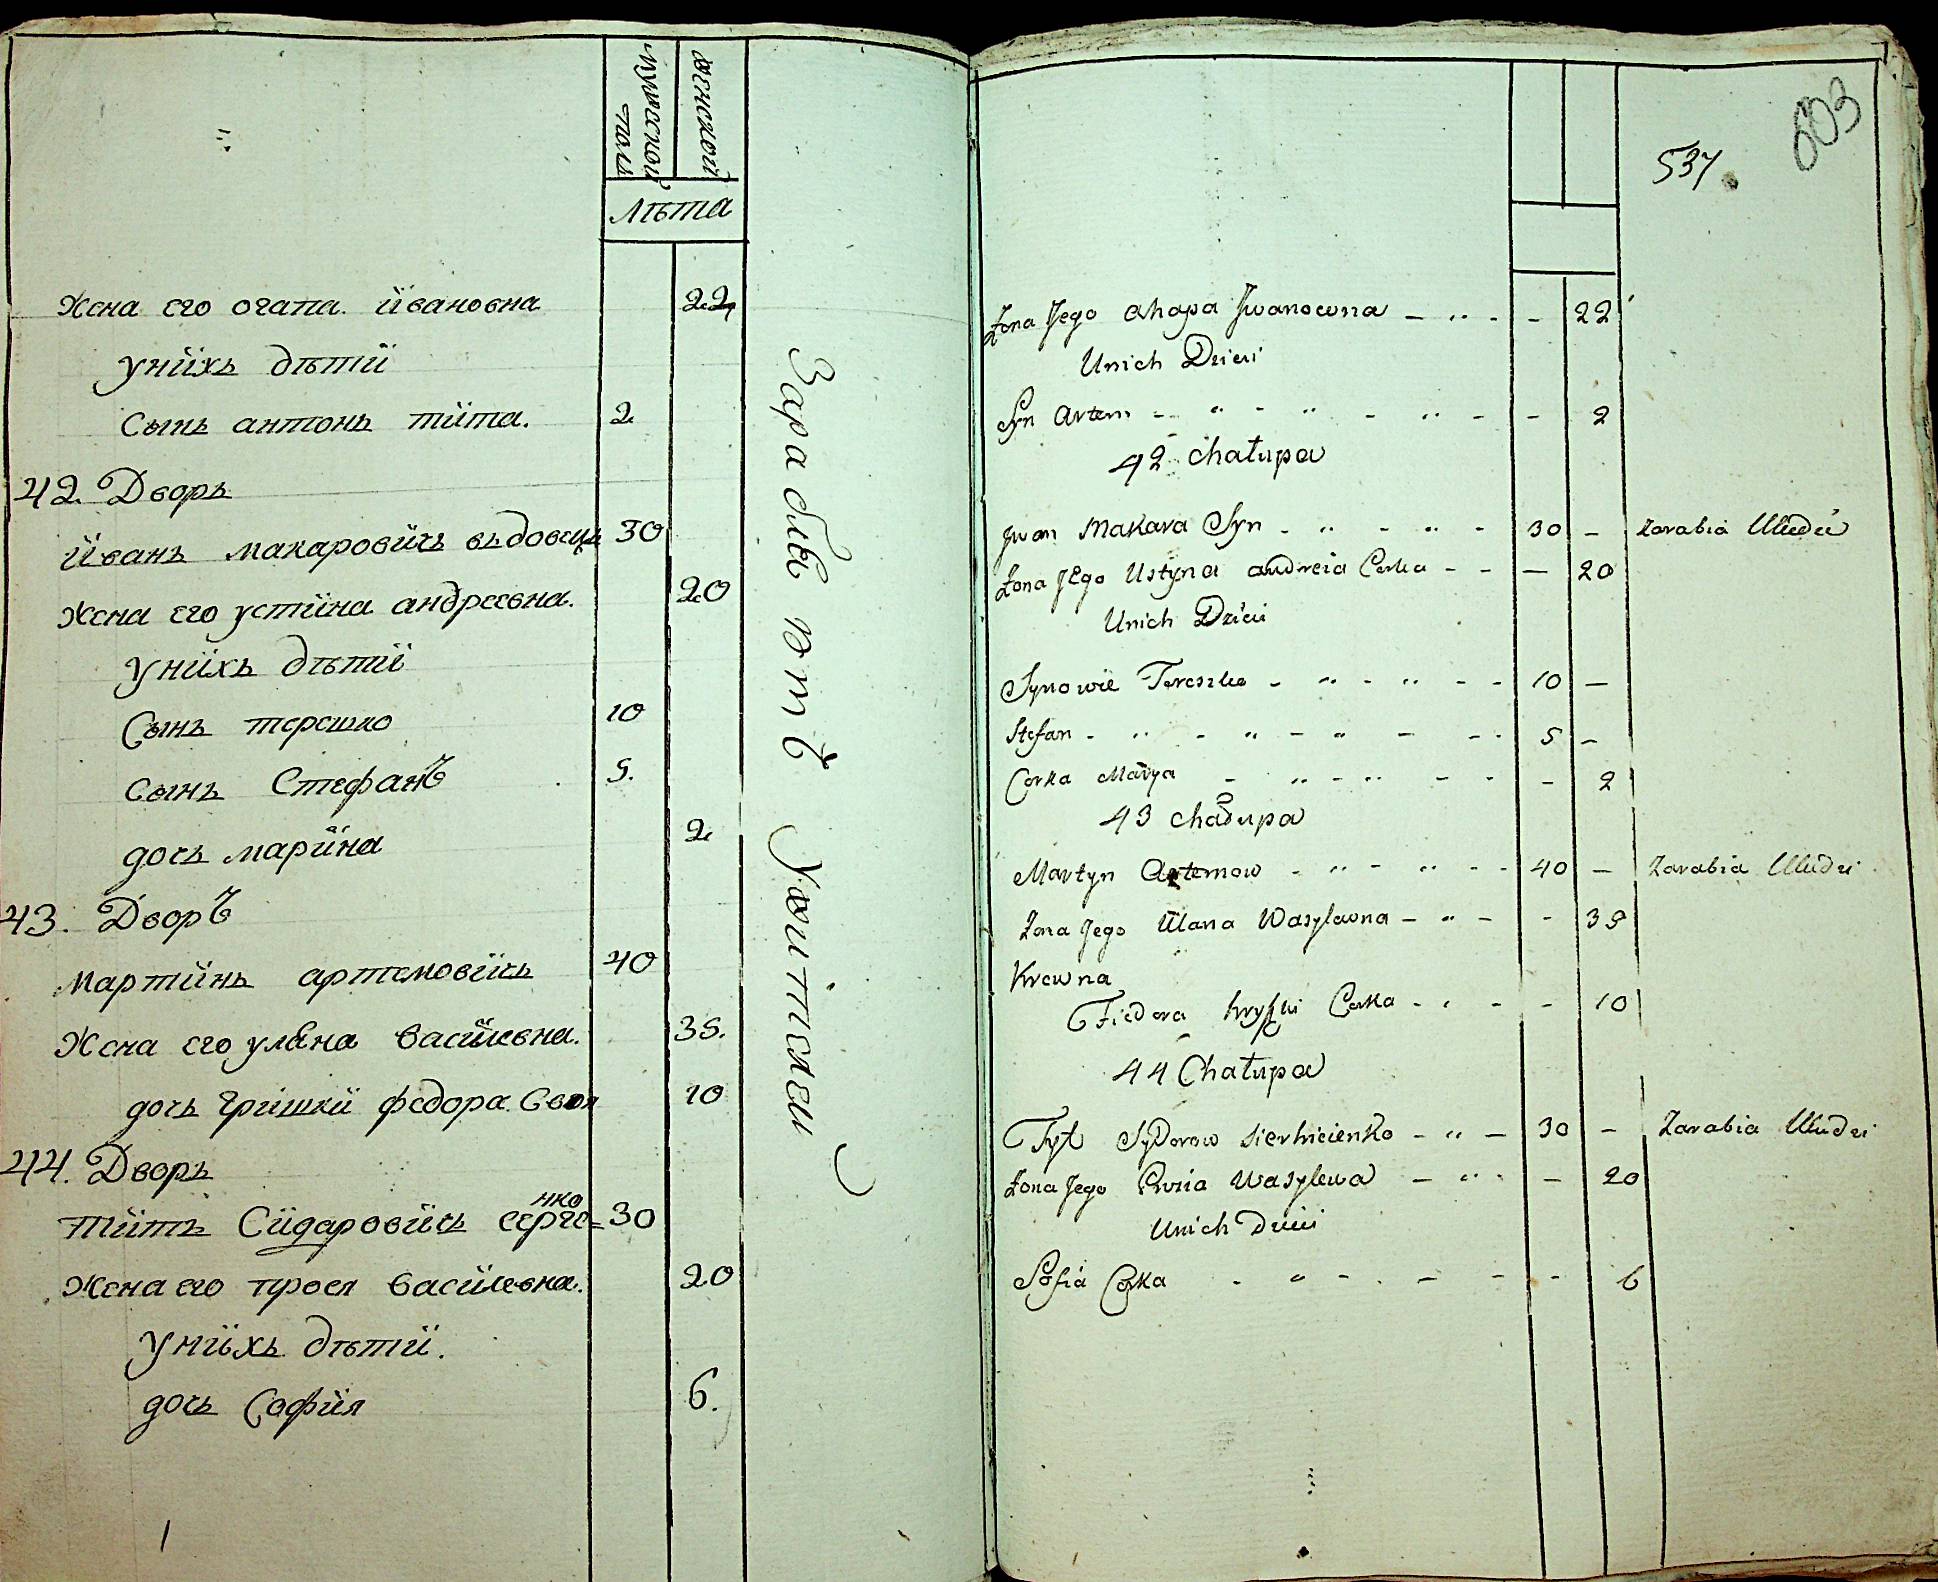 мужеской
полъ
женской
лѣта
Жена его огапа. ӥвановна 22
унӥхъ дѣтӥ
Сынъ антонъ тӥта. 2
42. Дворъ
ӥванъ макаровӥчь вьдовецъ 30
Жена его устӥна андреевна. 20
унӥхъ дѣтӥ
Сынъ терешко 10
сынъ Стефанъ 5.
дочь марӥна 2
43. Дворъ
Мартӥнъ артемовӥчь 40
Жена его уляна васӥлевна. 35.
дочь грӥшкӥ федора. Своя 10
44. Дворъ
Тӥтъ Сӥдаровӥчь серге=нко 30
Жена его прося васӥлевна. 20
унӥхъ дѣтӥ.
дочь Софӥя 6.
603
537.
Żona Jego ahapa Jwanowna 22
Unich Dzieci
Syn Artem 2
42 chałupa
Jwan Makara Syn 30 – Zarabia
Żona Jego Ustyna andreia Corka – 20
Unich Dzieci
Synowie Tereszko 10 –
Stefan 5 –
Corka Marya – 2
43 chałupa
Martyn Artemow 40 – Zarabia
Żona Jego Ulana Wasylewna – 35
Krewna
Fiedora hryszki Corka – 10
44 Chałupa
Tyt Sydorow Sierhieienko 30 – Zarabia
Żona Jego Prosia Wasylewa – 20
Unich Dzieci
Sofia Corka – 6